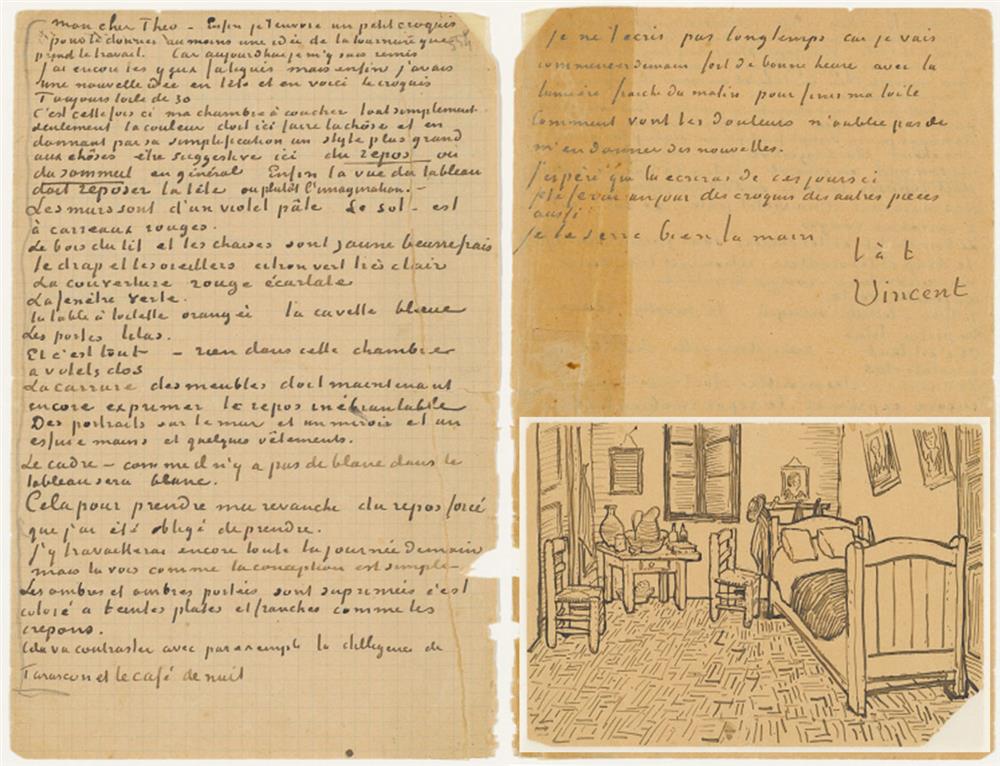 mon cher Theo – Enfin je t'envoie un petit croquis
pour te donner au moins une idée de la tournure que
prend le travail. Car aujourd'hui je m'y suis remis
J'ai encore les yeux fatigués mais enfin j'avais
une nouvelle idée en tête et en voici le croquis
Toujours toile de 30
C'est cette fois ci ma chambre à coucher tout simplement
seulement la couleur doit ici faire la chôse et en
donnant par sa simplification un style plus grand
aux chôses être suggestive ici du repos ou
du sommeil en général Enfin la vue du tableau
doit reposer la tête ou plutôt l'imagination. –
Les murs sont d'un violet pâle Le sol – est
à carreaux rouges.
Le bois du lit et les chaises sont jaune beurre frais
le drap et les oreillers citron vert très clair
La couverture rouge écarlate
La fenêtre verte.
la table à toilette orangée la cuvette bleue
Les portes lilas.
Et c'est tout – rien dans cette chambre
a volets clos
La carrure des meubles doit maintenant
encore exprimer le repos inébranlable
Des portraits sur le mur et un miroir et un
essuie mains et quelques vêtements.
Le cadre – comme il n'y a pas de blanc dans le
tableau sera blanc.
Cela pour prendre ma revanche du repos forcé
que j'ai été obligé de prendre.
J'y travaillerai encore toute la journée demain
mais tu vois comme la conception est simple –
Les ombres et ombres portées sont suprimées c'est
coloré a teintes plates et franches comme les
crepons.
Cela va contraster avec par exemple la diligence de
Tarascon et le café de nuit
Je ne t'ecris pas longtemps car je vais
commencer demain fort de bonne heure avec la
lumière fraiche du matin pour finir ma toile
Comment vont les douleurs n'oublie pas de
m'en donner des nouvelles.
J'espère que tu ecriras de ces jours ci
Je te ferai un jour des croquis des autres pièces
aussi
Je te serre bien la main
t à t
Vincent